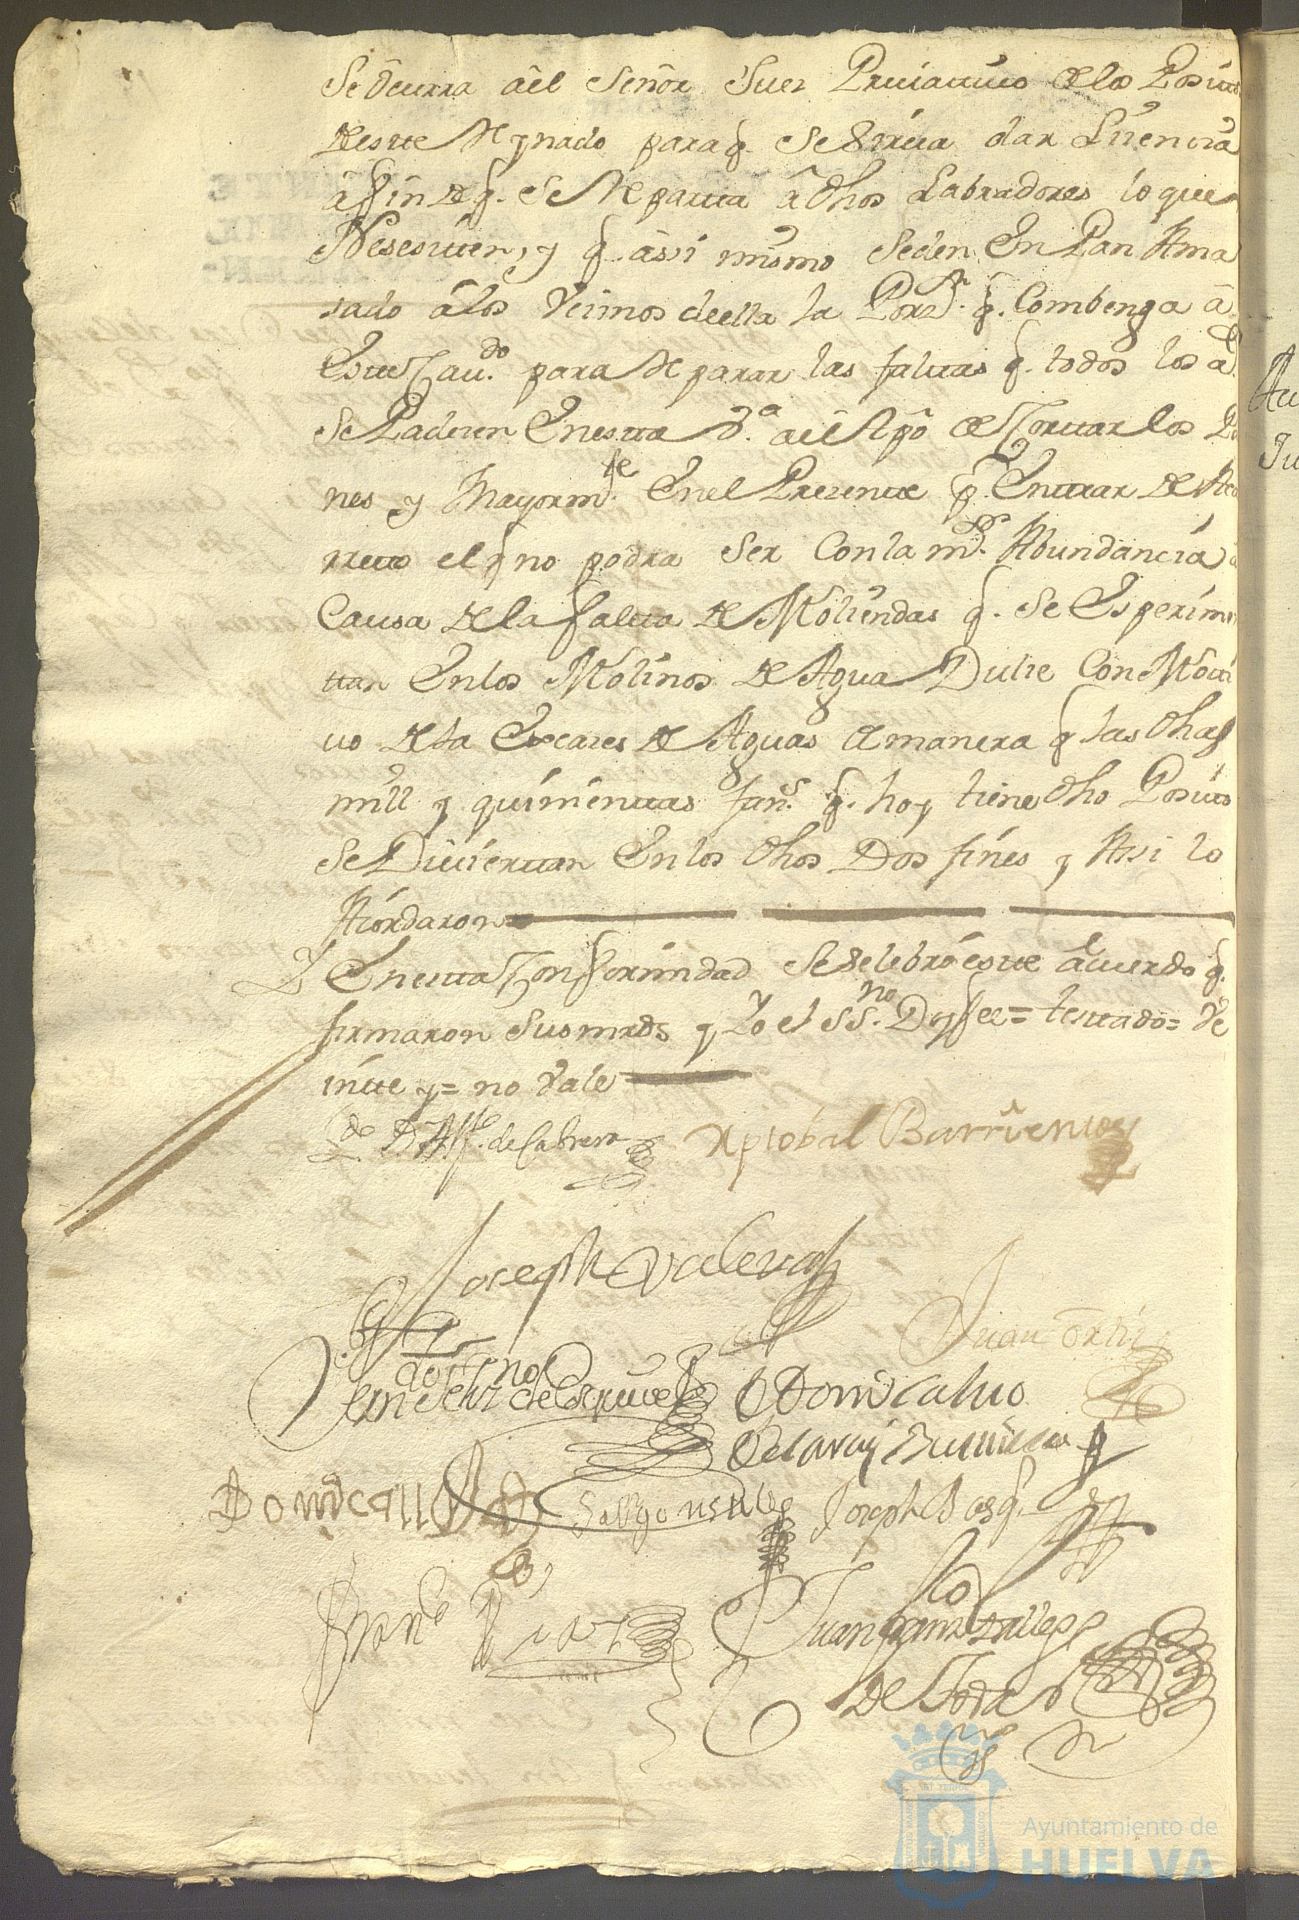 Se Ocurra âel Señor Juez Priuatiuo de los Positos
deste Reynado para q. Se Sirua dar Lizencia
â fin de q. Se Reparta â dhos Labradores lo que
Nesesiten, y q. assi mismo Seden En Pan Ama
sado â los Vezinos de ella la Porzn. q. Combenga â
Este Caudo. para Reparar las faltas q. todos los as.
Se Padezen En esta Va. âel tpô de Cortar los Pa
nes y Mayormte. En el Prezente
el q no podra Ser Con la mor. Abundancia â
Causa de la falta de Moliendas q. Se Esperimen
tan En los Molinos de Agua Dulze Con Moti
uo de la Escases de Aguas de manera q las dhas
mill y quinientas fans. q. hoy tiene dho Posito
Se Diuiertan En los dhos Dos fines y Assi lo
Acordaron
Y En esta Conformidad Se Selebró este acuerdo q.
firmaron Sus mrds y Yo el Ssno. Doy fee = testado = Ve
inte y = no Vale
Ldo. Dn Alfo. de Cabrera Xptobal Barrientos
Joseph Valera
Juan Ortiz
Domo Caluo
Joseph Bosq.
Franco Diaz
Juan
de
Ayuntamiento de
HUELVA